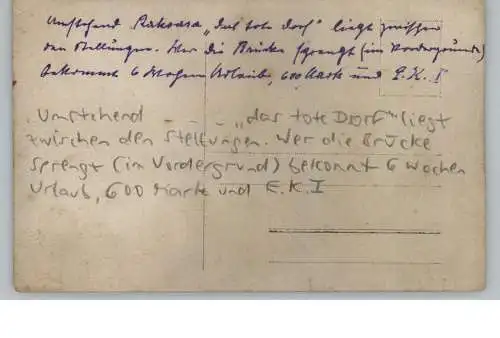 Umstehend Rakoasa „Das tote Dorf“ liegt zwischen
den Stellungen. Wer die Brücke sprengt (im Vordergrunde)
bekommt 6 Wochen Urlaub, 600 Mark und E.K. I
Umstehend _ _ _ _ „das tote Dorf“ liegt
zwischen den Stellungen. Wer die Brücke
sprengt (im Vordergrund) bekommt 6 Wochen
Urlaub, 600 Mark und E.K.I